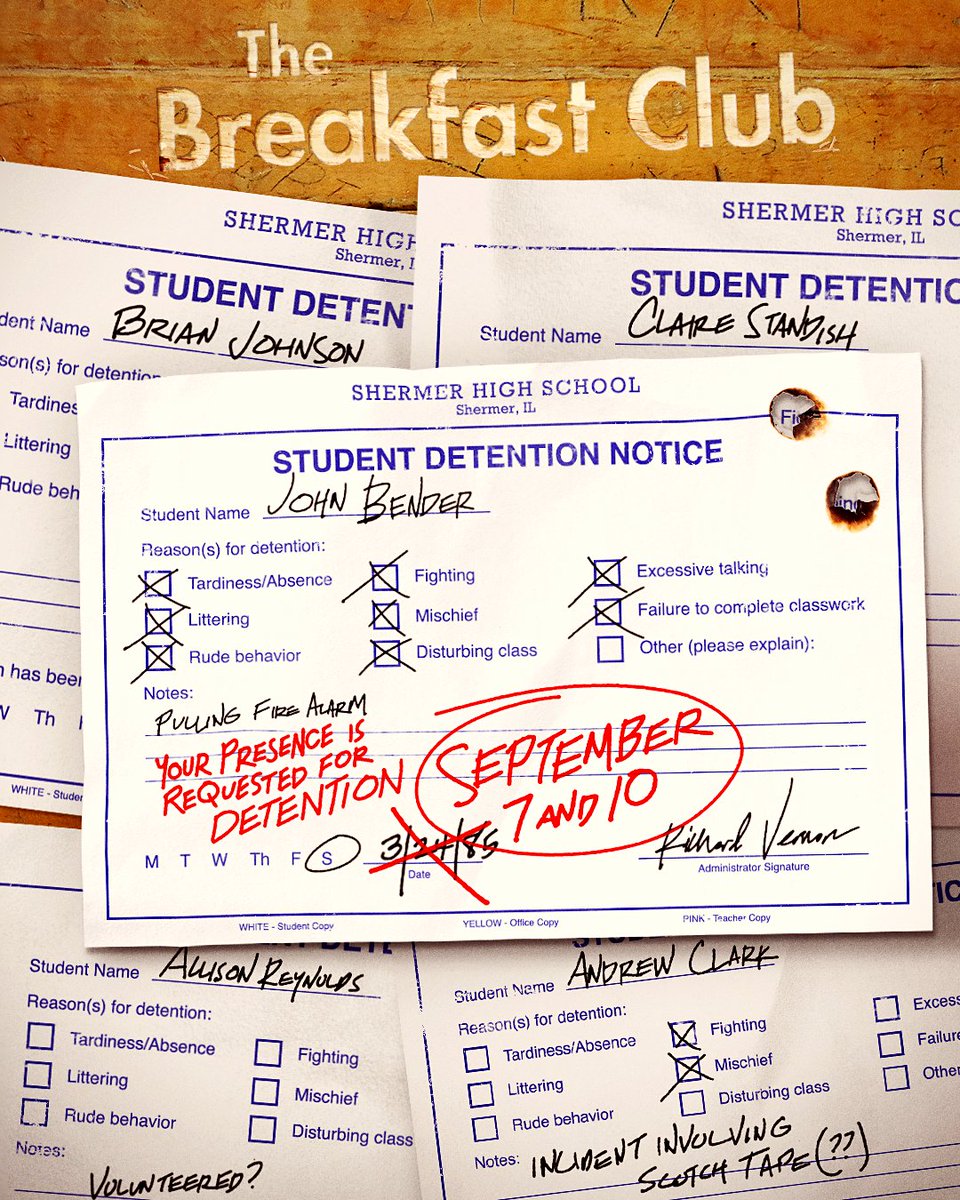 The
Breakfast Club
SHERMER HIGH
Shermer, I
STUDENT DETENT
dent Name BRIAN JOHNSON
son(s) for detention
Tardines
Littering
Rude beh
n has been
W Th
WHITE - Studen
SHERMER HIGH SC
Shermer, IL
STUDENT DETENTIO
Student Name CLAIRE STANDISH
SHERMER HIGH SCHOOL
Shermer, IL
STUDENT DETENTION NOTICE
Student Name JOHN BENDER
Reason(s) for detention:
Tardiness/Absence Fighting Excessive talking
Littering Mischief Failure to complete classwork
Rude behavior Disturbing class Other (please explain):
Notes:
PULLING FIRE ALARM
YOUR PRESENCE IS
REQUESTED FOR
DETENTION
SEPTEMBER
7 AND 10
M T W Th F S 3/24/85 Richard Vernon
Date Administrator Signature
WHITE - Student Copy YELLOW - Office Copy PINK - Teacher Copy
Student Name ALLISON REYNOLDS
Reason(s) for detention:
Tardiness/Absence Fighting
Littering Mischief
Rude behavior Disturbing class
Notes:
VOLUNTEERED?
Student Name ANDREW CLARK
Reason(s) for detention:
Tardiness/Absence Fighting Excess
Littering Mischief Failure
Rude behavior Disturbing class Other
Notes: INCIDENT INVOLVING
SCOTCH TAPE (??)